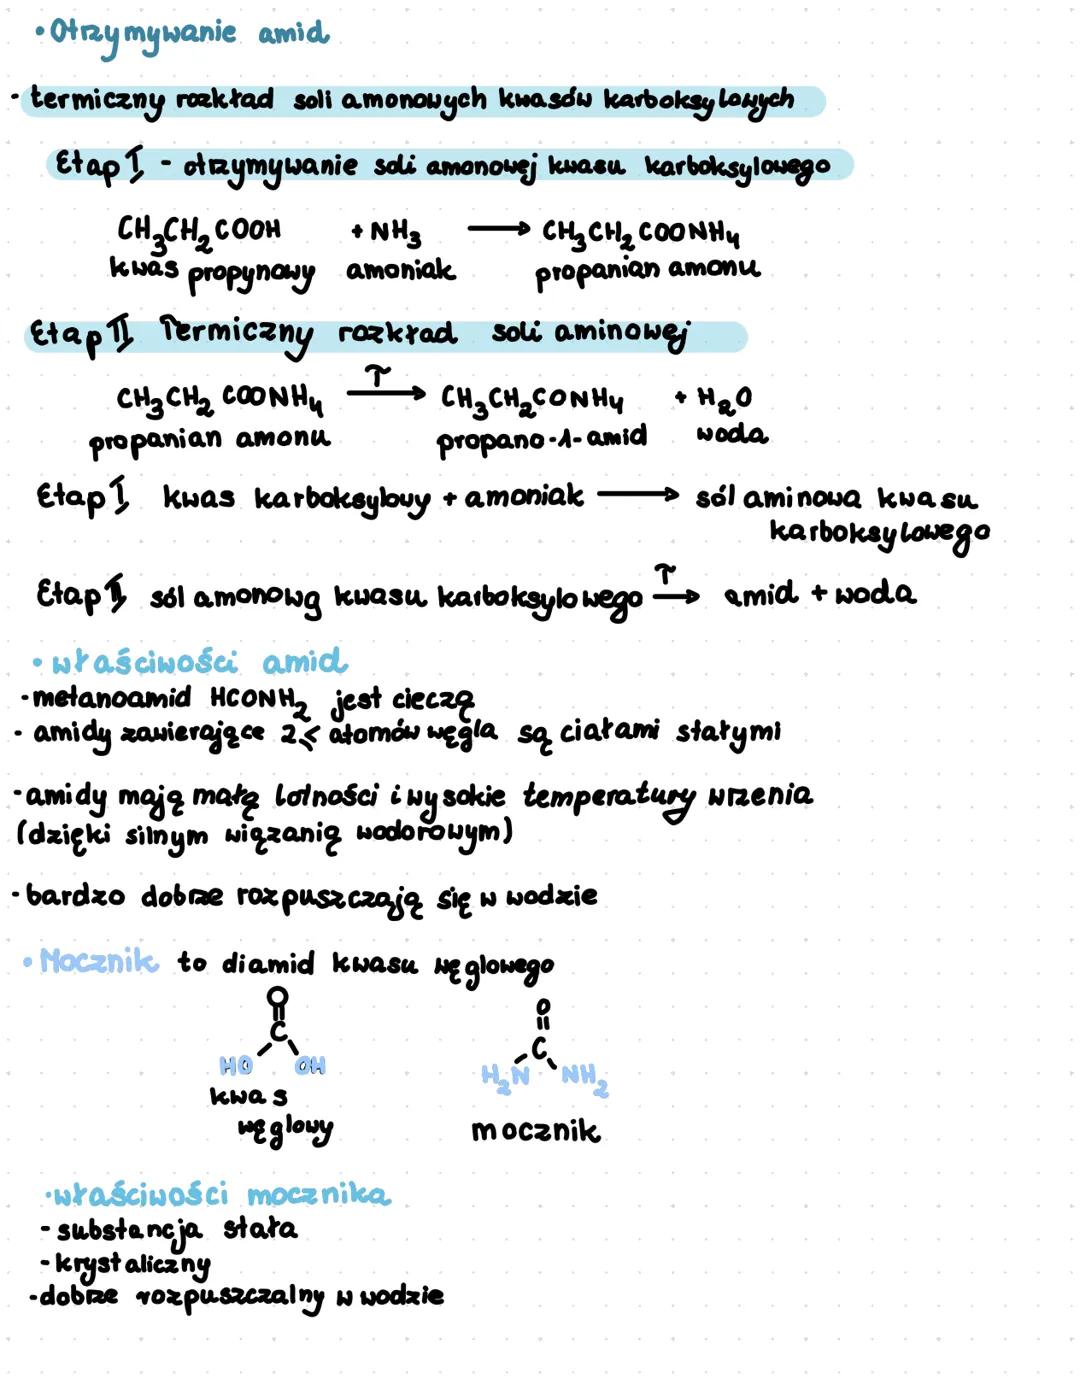 • Otrzymywanie amid
- termiczny rozkład soli amonowych kwasów karboksylowych
Etap I - otrzymywanie soli amonowej kwasu karboksylowego
CH₃CH₂COOH + NH₃ ⟶ CH₃CH₂COONH₄
kwas propynowy amoniak propanian amonu
Etap II Termiczny rozkład soli aminowej
T
CH₃CH₂COONH₄ ⟶ CH₃CH₂CONH₄ + H₂O
propanian amonu propano-1-amid woda
Etap I kwas karboksylowy + amoniak ⟶ sól aminowa kwasu
karboksylowego
T
Etap II sól amonową kwasu karboksylowego ⟶ amid + woda
• właściwości amid
- metanoamid HCONH₂ jest cieczą
- amidy zawierające 2≤ atomów węgla są ciałami stałymi
- amidy mają małą lotności i wysokie temperatury wrzenia
(dzięki silnym wiązanią wodorowym)
- bardzo dobrze rozpuszczają się w wodzie
• Mocznik to diamid kwasu węglowego
O O
C C
HO OH H₂N NH₂
kwas
węglowy mocznik
• właściwości mocznika
- substancja stała
- krystaliczny
- dobrze rozpuszczalny w wodzie